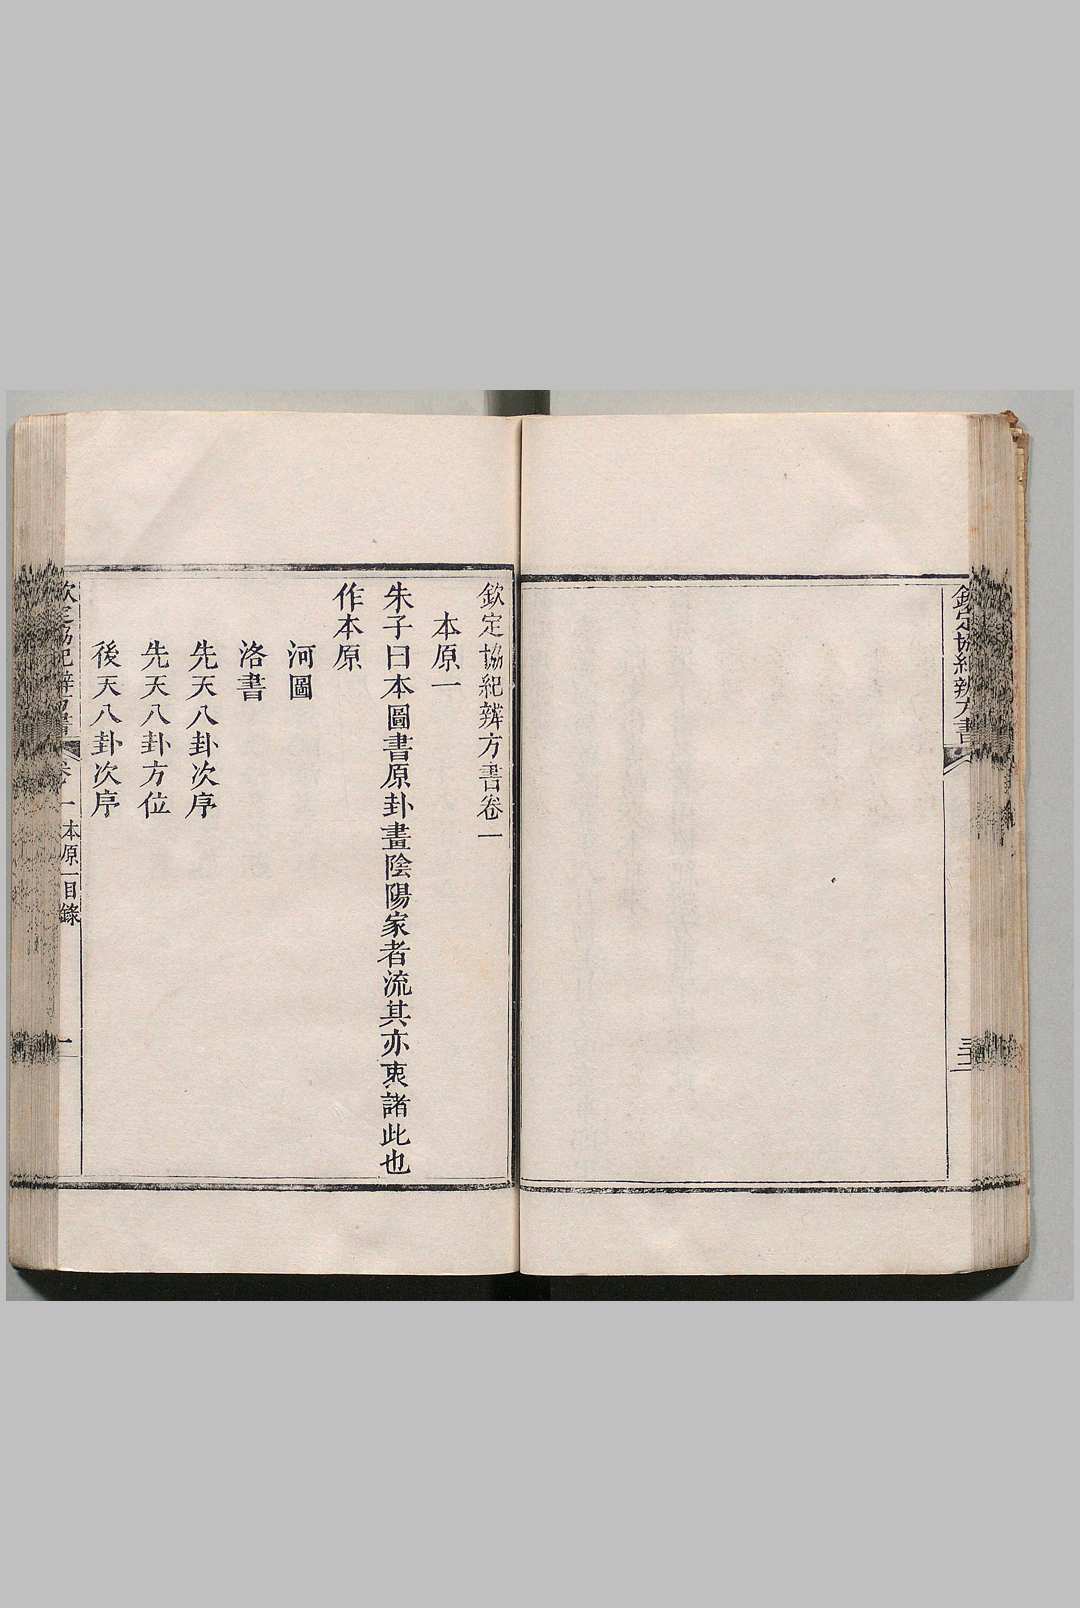 欽定協紀辨方書
三十二
欽定協紀辨方書卷一
本原一
朱子曰本圖書原卦畫陰陽家者流其亦衷諸此也
作本原
河圖
洛書
先天八卦次序
先天八卦方位
後天八卦次序
欽定協紀辨方書 卷一 本原一目錄 一